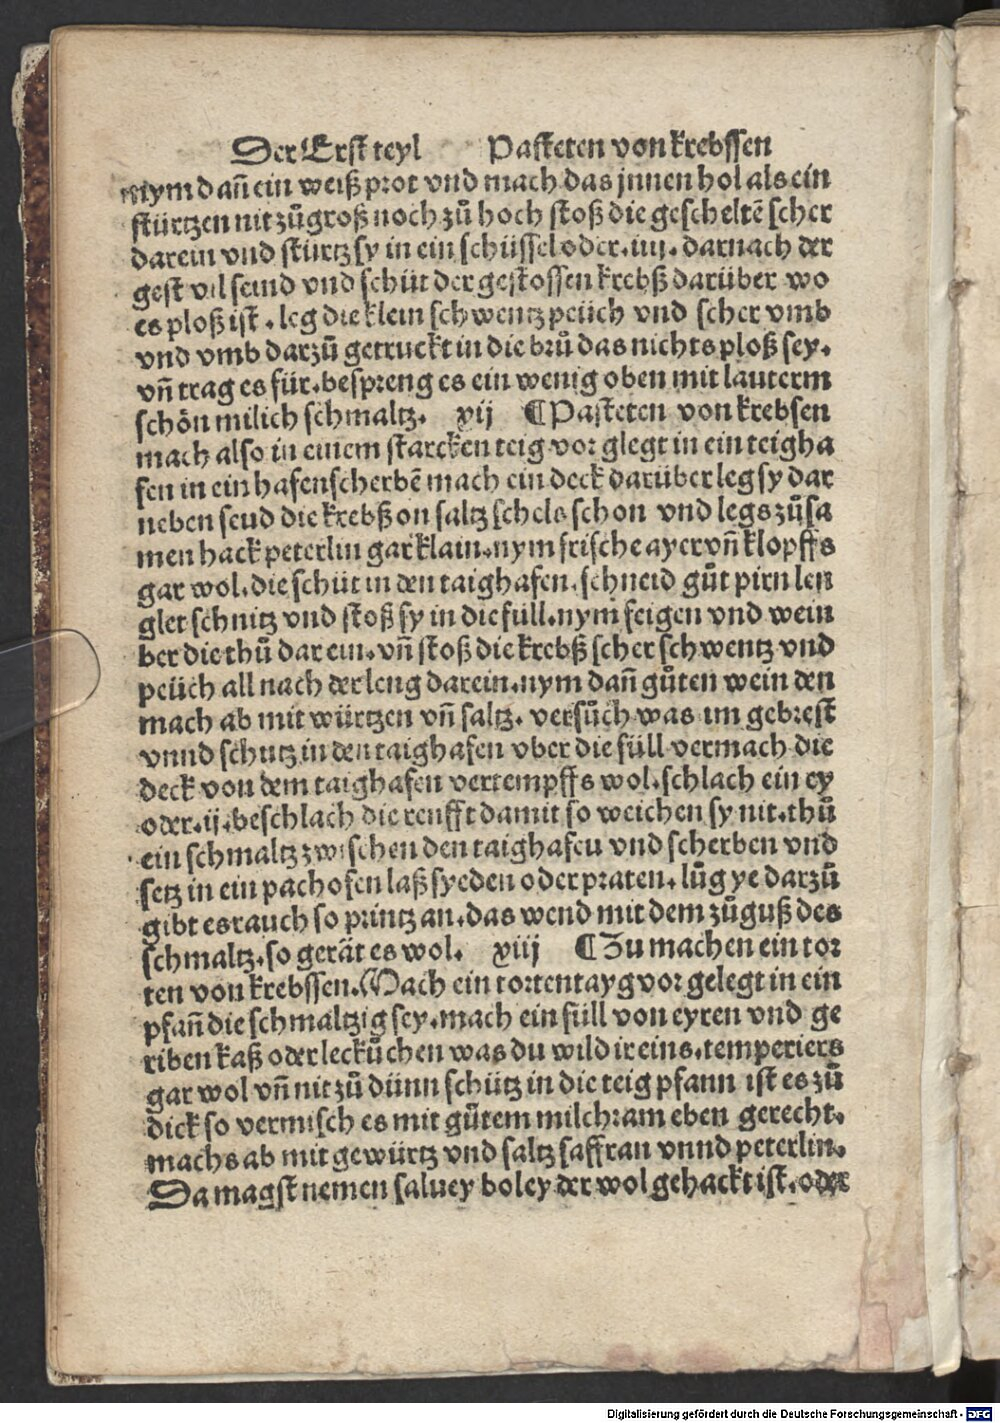 Der Erst teyl Pasteten von krebssen
nym dañ ein weiß prot vnd mach das jnnen hol als ein
stürtzen nit zůgroß noch zů hoch stoß die gescheltē scher
darein vnd stürtz sy in ein schüssel oder .iij. darnach der
gest vil seind vnd schüt der gestossen krebß darüber wo
es ploß ist . leg die klein schwentz peüch vnd scher vmb
vnd vmb darzů getruckt in die brů das nichts ploß sey.
vñ trag es für. bespreng es ein wenig oben mit lauterm
schön milich schmaltz. xij ¶ Pasteten von krebsen
mach also in einem starcken teig vor glegt in ein teigha
fen in ein hafenscherbē mach ein deck darüber leg sy dar
neben seud die krebß on saltz schels schon vnd legs zůsa
men hack peterlin gar klain. nym frische ayer vñ klopffs
gar wol. die schüt in den taighafen. schneid gůt pirn len
glet schnitz vnd stoß sy in die füll. nym feigen vnd wein
ber die thů darein. vñ stoß die krebß scher schwentz vnd
peüch all nach der leng darein. nym dañ gůten wein den
mach ab mit würtzen vñ saltz. versůch was im gebrest
vnnd schutz in den taighafen vber die füll vermach die
deck von dem taighafen vertempffs wol. schlach ein ey
oder .ij. beschlach die renfft damit so weichen sy nit. thů
ein schmaltz zwischen den taighafen vnd scherben vnd
setz in ein pachofen laß syeden oder praten. lůg ye darzů
gibt es rauch so printz an. das wend mit dem zůguß des
schmaltz. so gerät es wol. xiij ¶ Zu machen ein tor
ten von krebssen. Mach ein tortentayg vor gelegt in ein
pfañ die schmaltzig sey. mach ein füll von eyren vnd ge
riben kaß oder leckůchen was du wild ir eins. temperiers
gar wol vñ nit zů dünn schütz in die teig pfann ist es zů
dick so vermisch es mit gůtem milchram eben gerecht.
machs ab mit gewürtz vnd saltz saffran vnnd peterlin.
Da magst nemen saluey boley der wol gehackt ist. oder
Digitalisierung gefördert durch die Deutsche Forschungsgemeinschaft - DFG